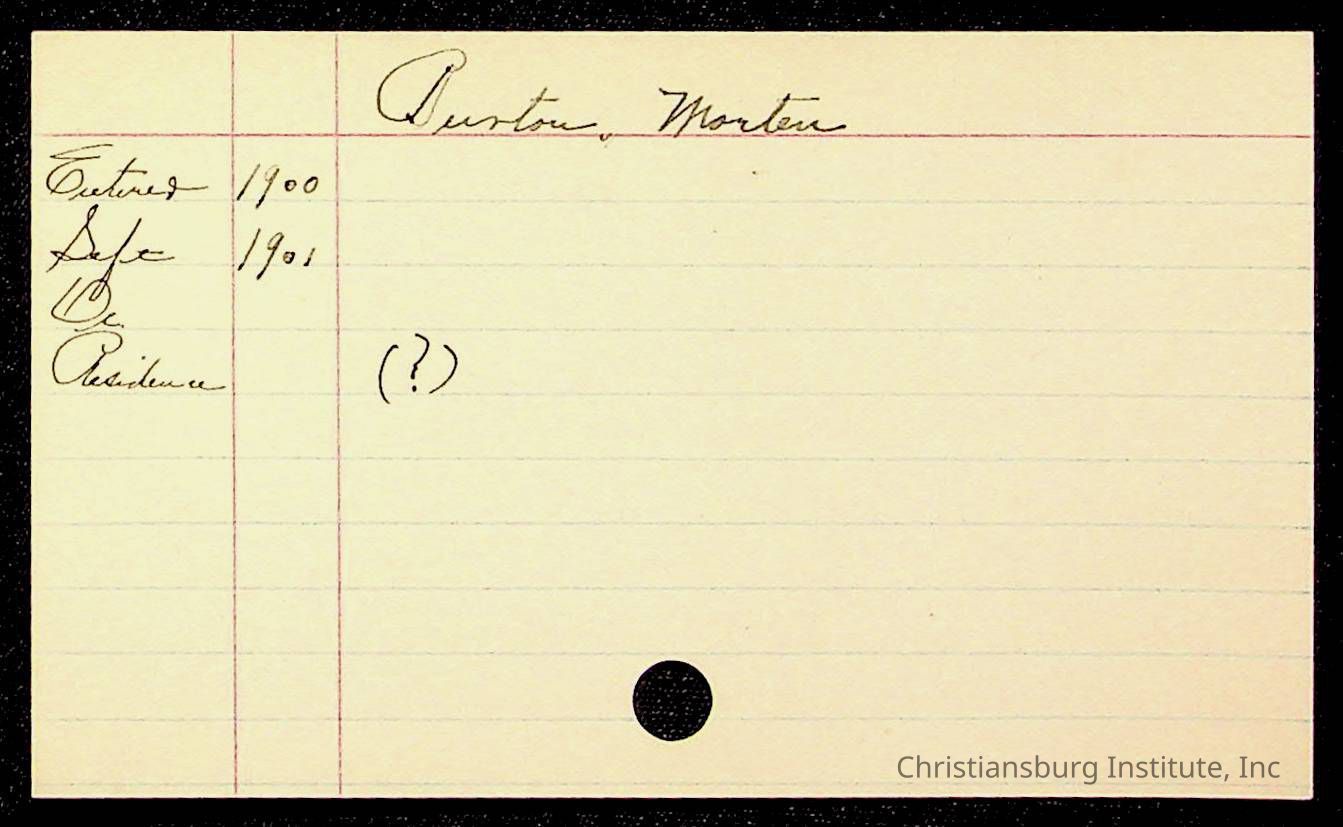 Burton, Morten
Entered 1900
Left 1901
Residence (?)
Christiansburg Institute, Inc